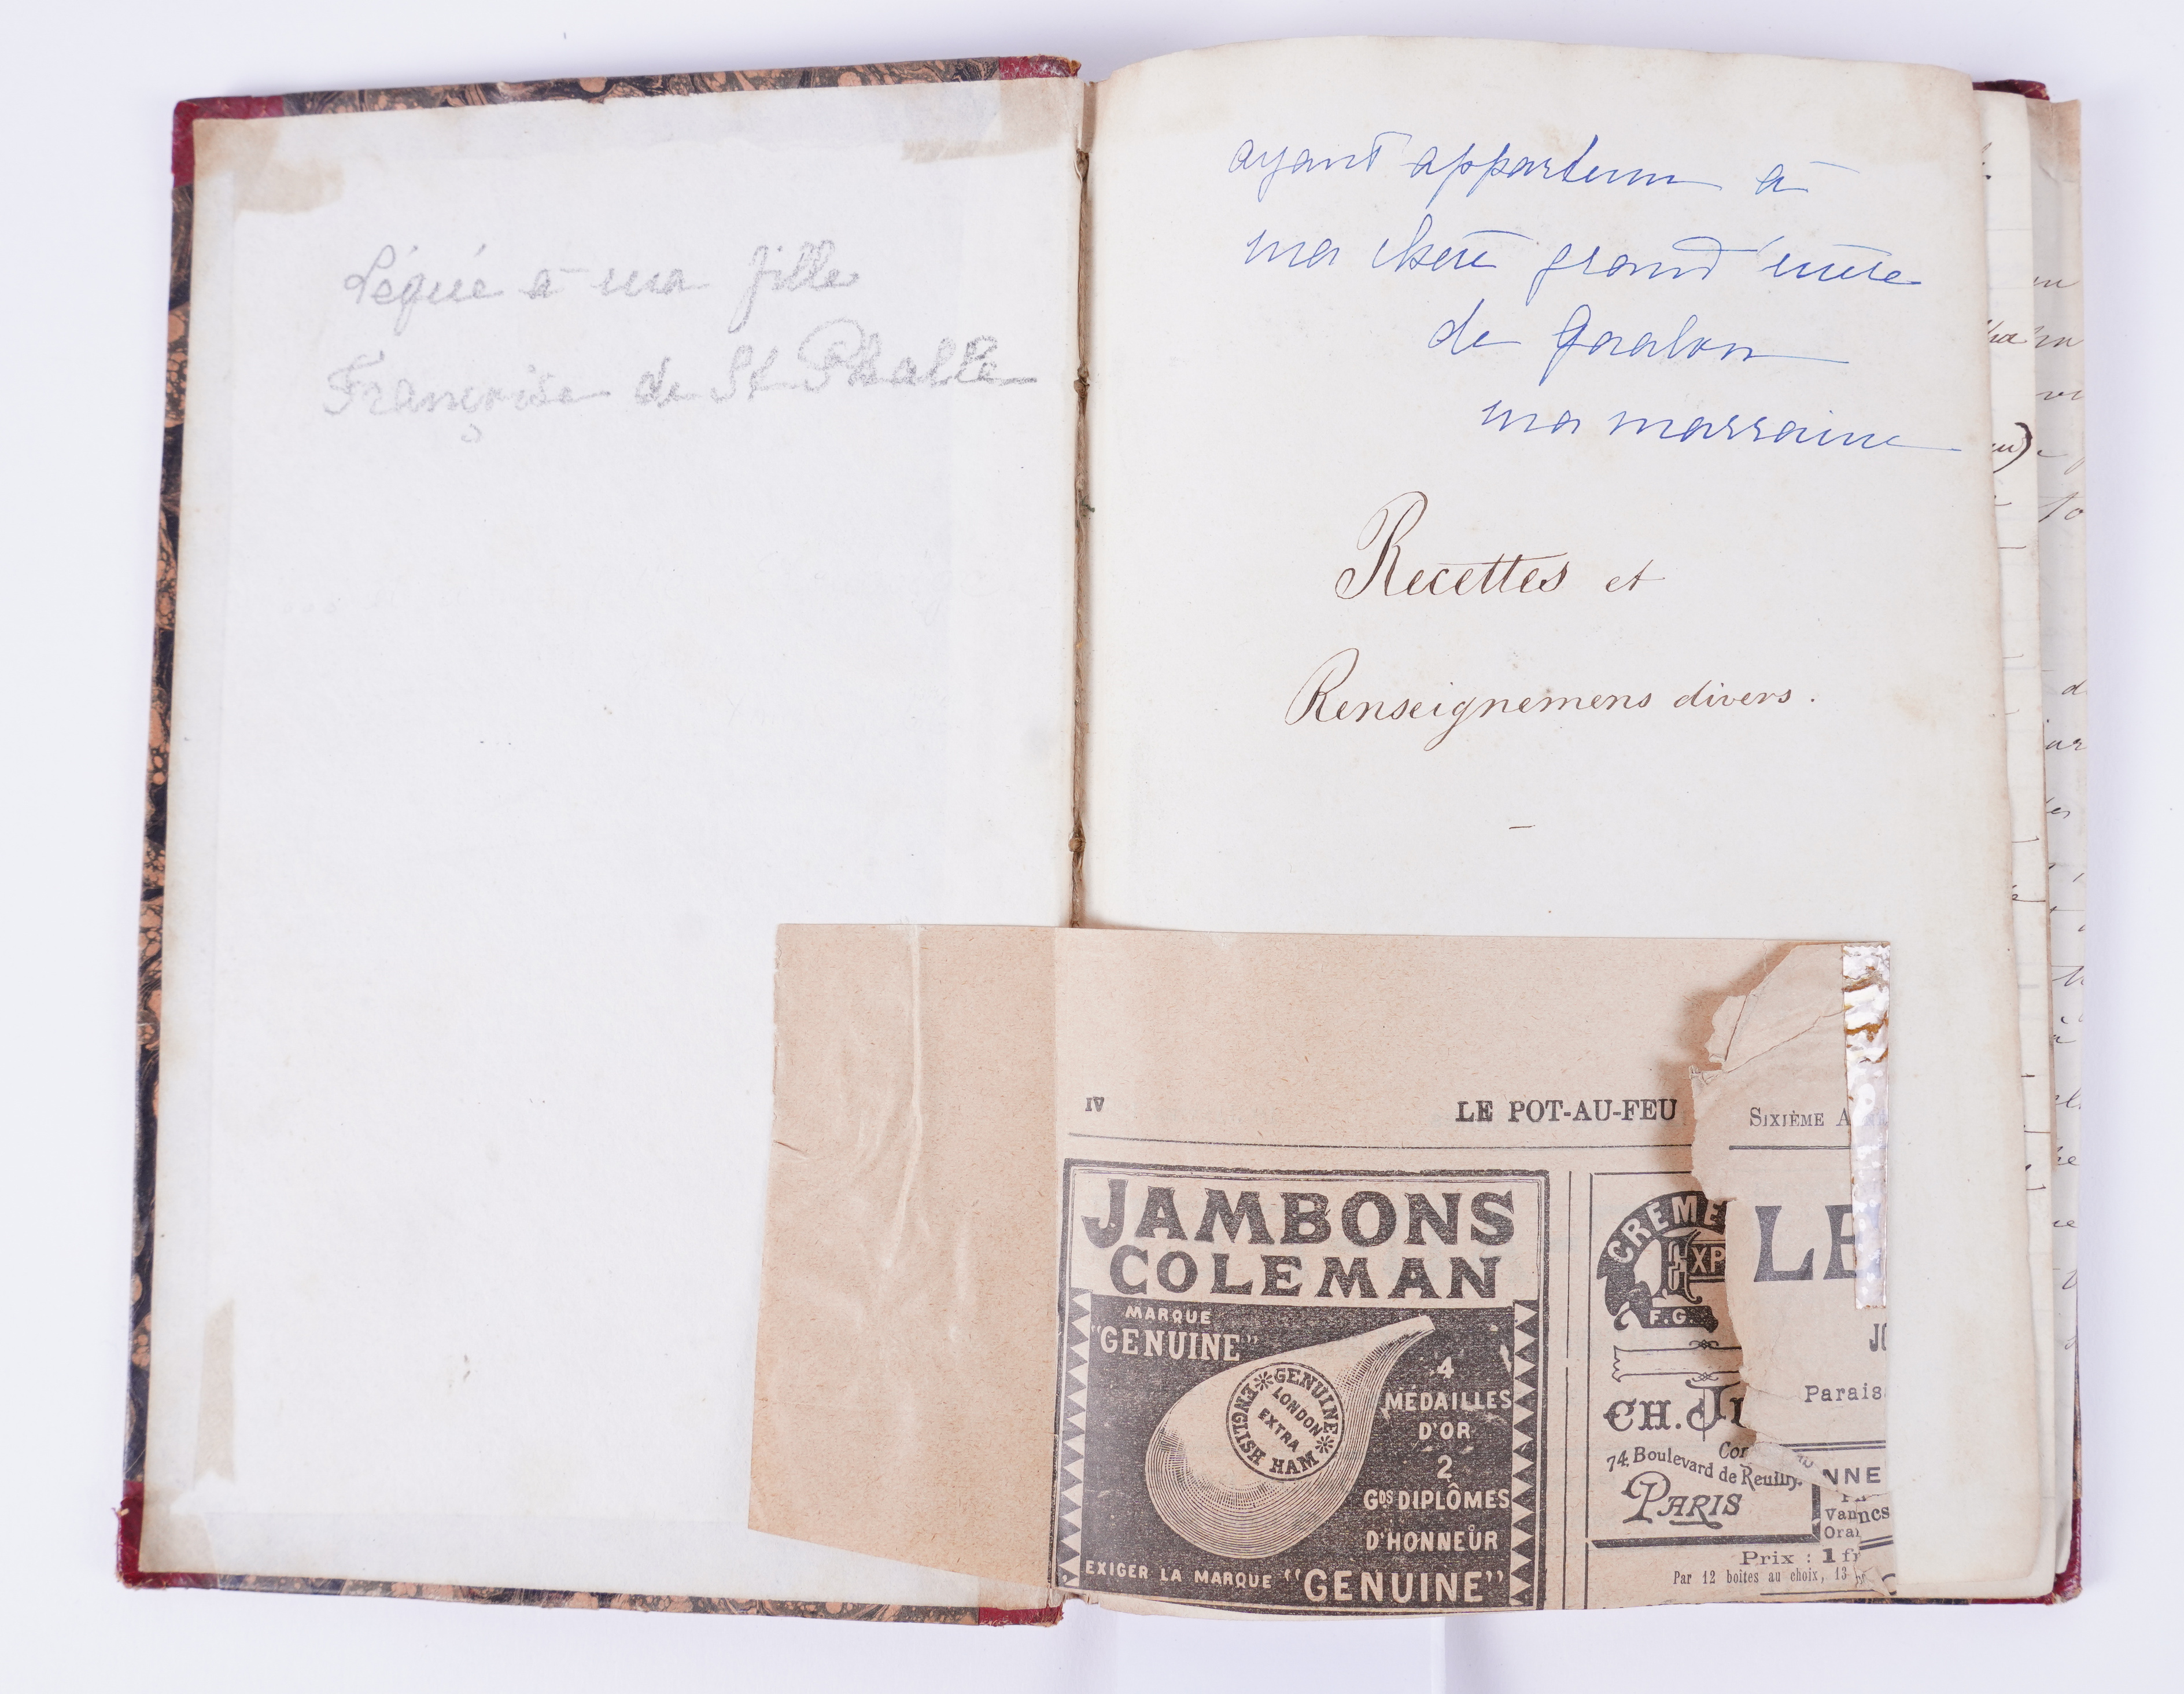 Léguée à ma fille
Françoise de St Phalle
ayant appartenu à
ma chère grand'mère
de Gralon
ma marraine
Recettes et
Renseignemens divers.
IV
LE POT-AU-FEU
SIXIÈME A
JAMBONS
COLEMAN
MARQUE
"GENUINE"
GENUINE
ENGLISH HAM
LONDON
EXTRA
4
MÉDAILLES
D'OR
2
Gds DIPLÔMES
D'HONNEUR
EXIGER LA MARQUE "GENUINE"
CREME
EXP
F.G.
CH. J
74, Boulevard de Reuilly.
PARIS
Prix : 1 fr
Par 12 boites au choix, 13
LE
JO
Parais
NNE
Vannes
Ora